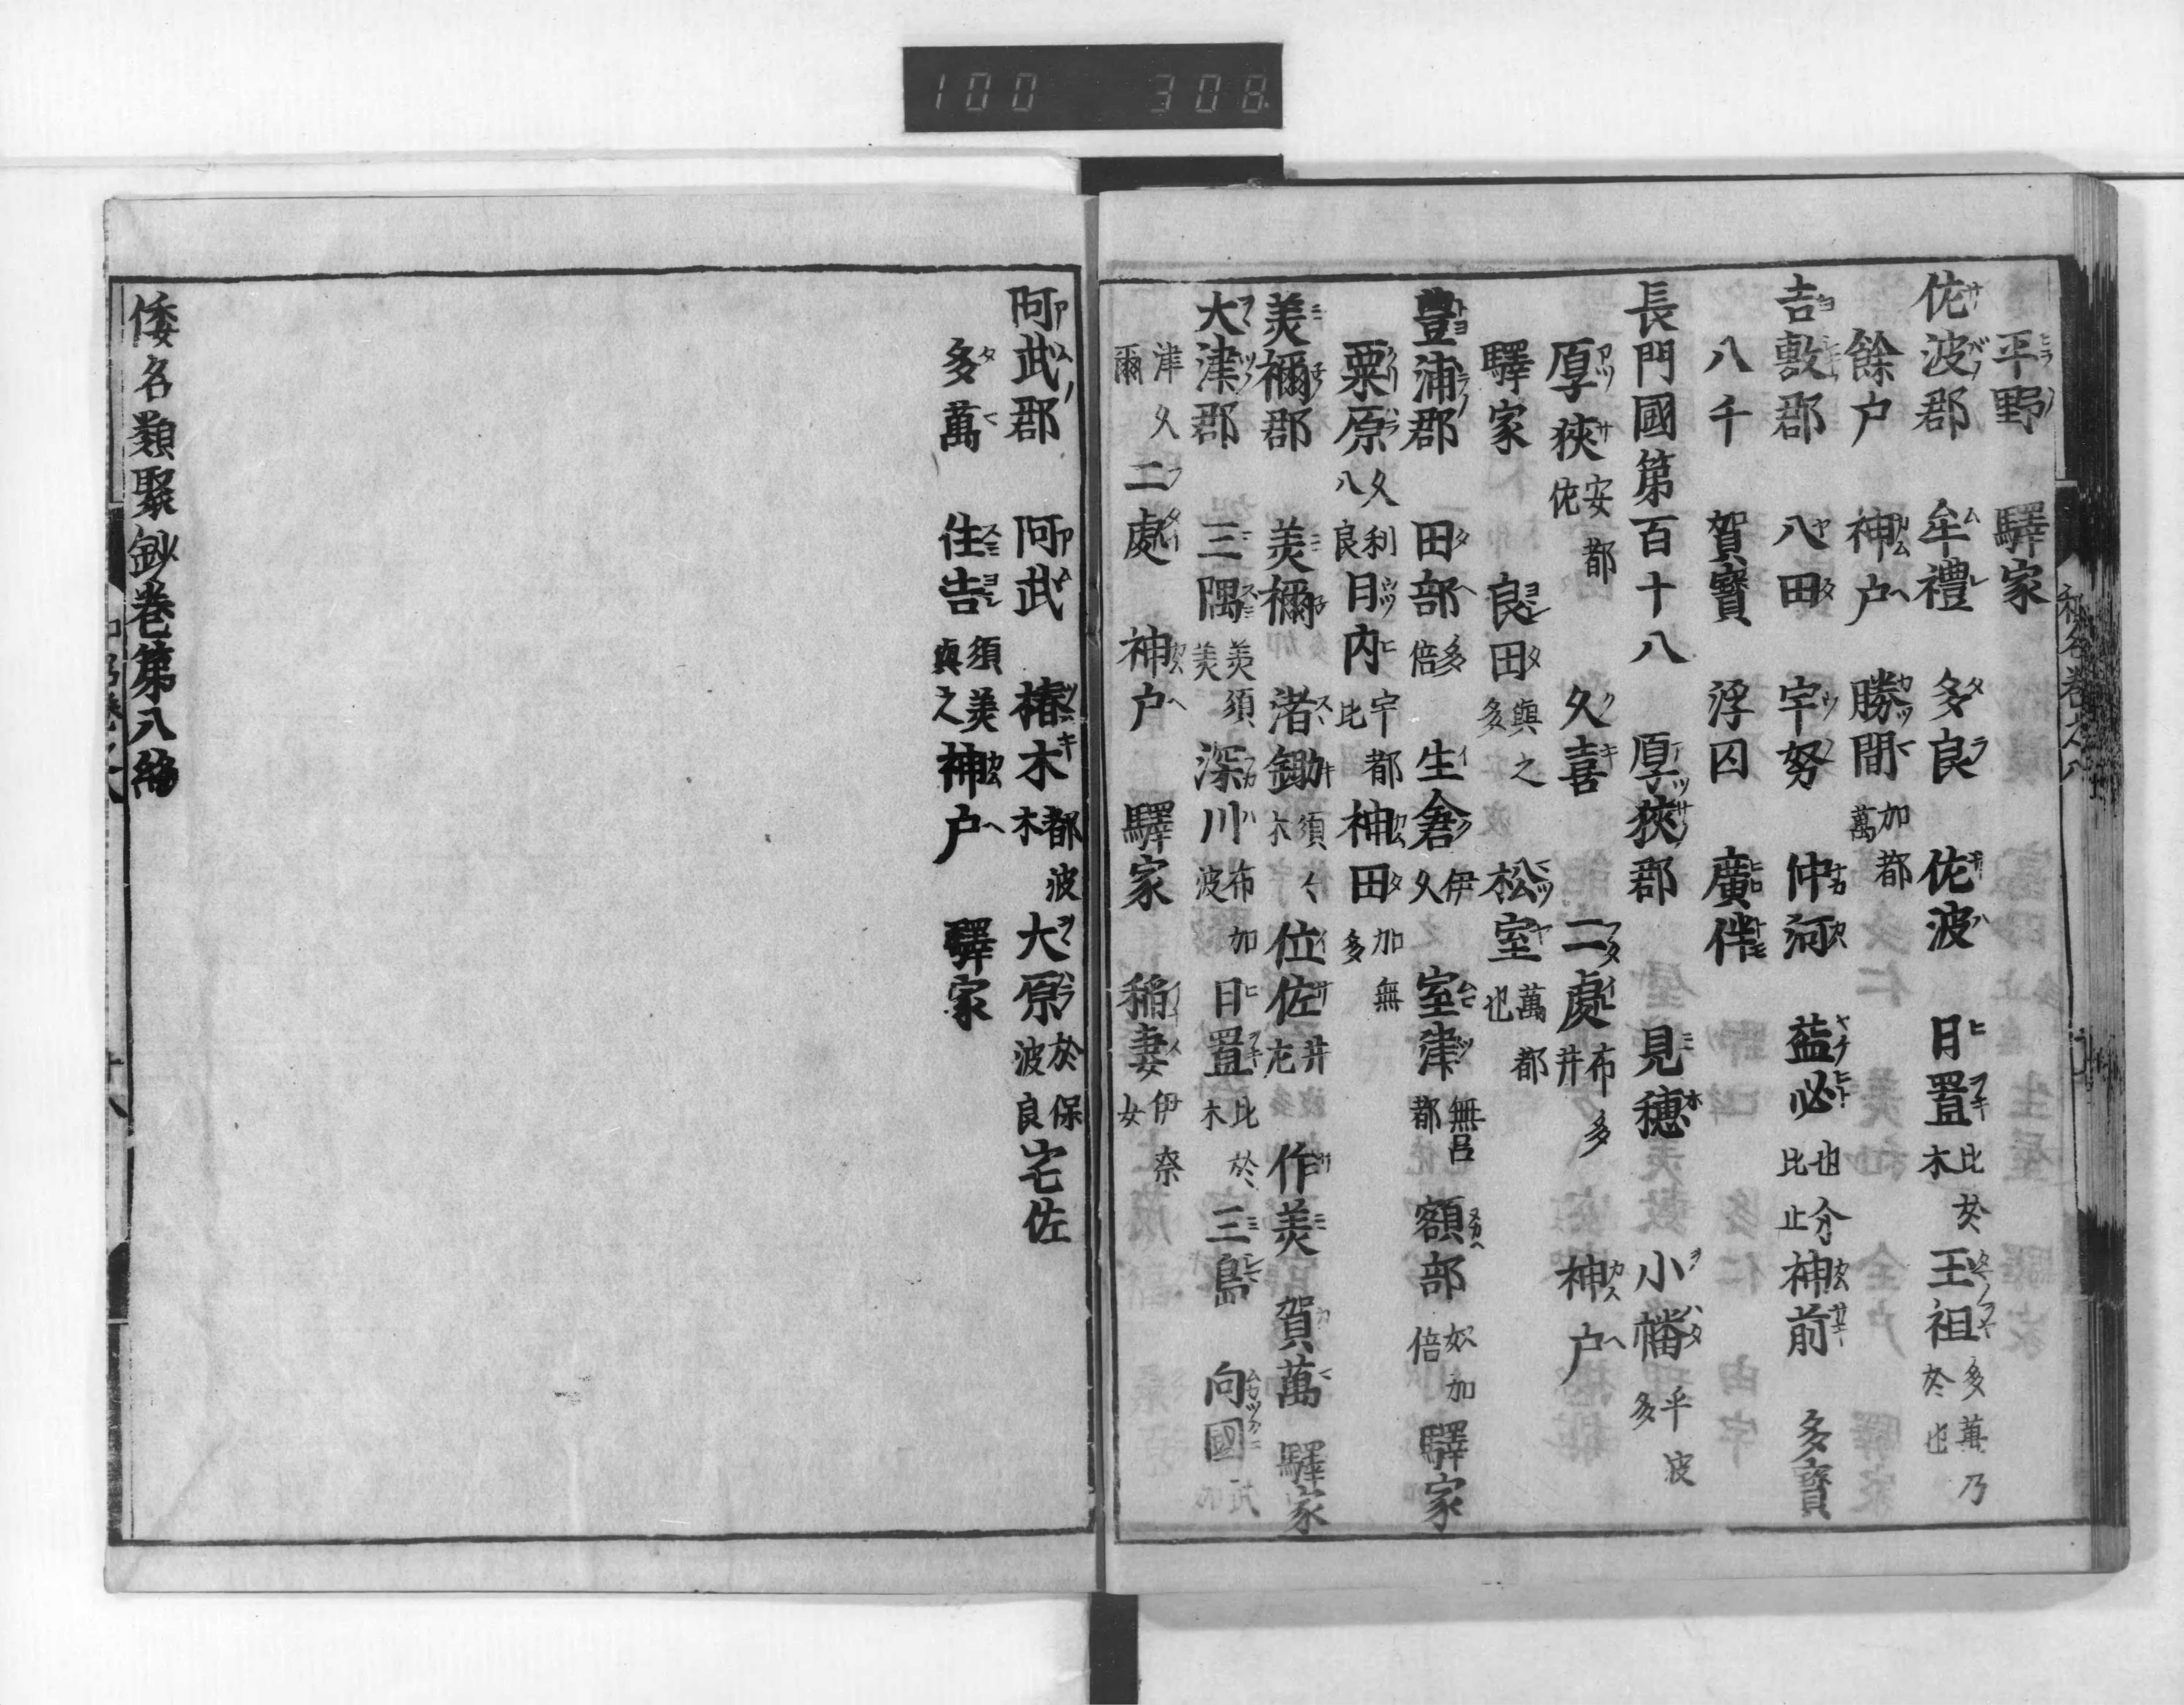 100 308
平野 驛家
佐波郡 牟禮 多良 佐波 日置比於木 玉祖多萬乃於也
餘户 神户 勝間加都萬
吉敷郡 八田 宇努 仲河 益必也介比止 神前 多寶
八千 賀寶 浮囚 廣伴
長門國第百十八 厚狹郡 見穗 小幡乎波多
厚狹安都佐 久喜 二處布多井 神户
驛家 良田與之多 松室萬都也
豊浦郡 田部多倍 生倉伊久 室津無呂都 額部奴加倍 驛家
粟原久利八良 日内宇都比 神田加無多
美禰郡 美禰 渚鋤須々木 位佐 作美 賀萬 驛家
大津郡 三隅美須美 深川布加波 日置比於木 三島 向國
津久爾 二處 神户 驛家 稲妻伊奈女
阿武郡 阿武 椿木都波木 大原於保波良 宅佐
多萬 住吉須美與之 神户 驛家
倭名類聚鈔巻第八終